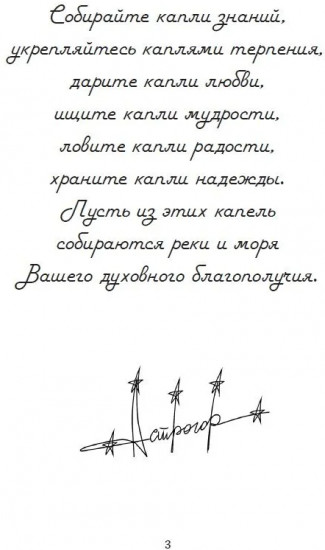 Собирайте капли знаний,
укрепляйтесь каплями терпения,
дарите капли любви,
ищите капли мудрости,
ловите капли радости,
храните капли надежды.
Пусть из этих капель
собираются реки и моря
Вашего духовного благополучия.
Астрогор
3